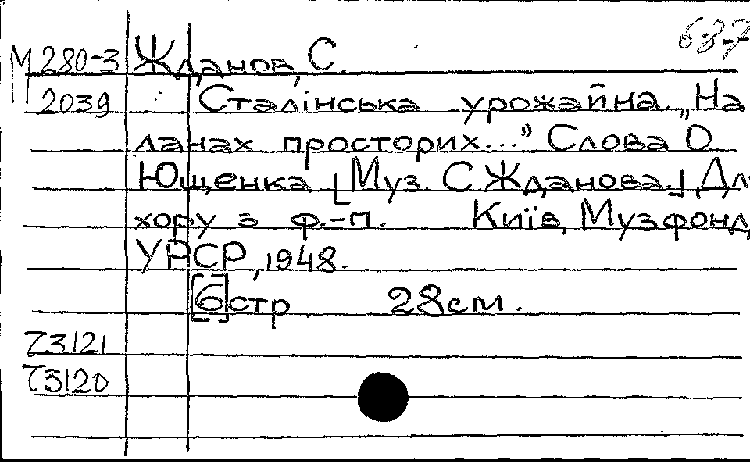 637
М 280-3 Жданов, С.
2039 Сталінська урожайна. „На
ланах просторих...” Слова О.
Ющенка. [Муз. С. Жданова.] Для
хору з ф.-п. Київ, Музфонд
УРСР, 1948.
[6] стр 28 см.
Z3121
Z3120